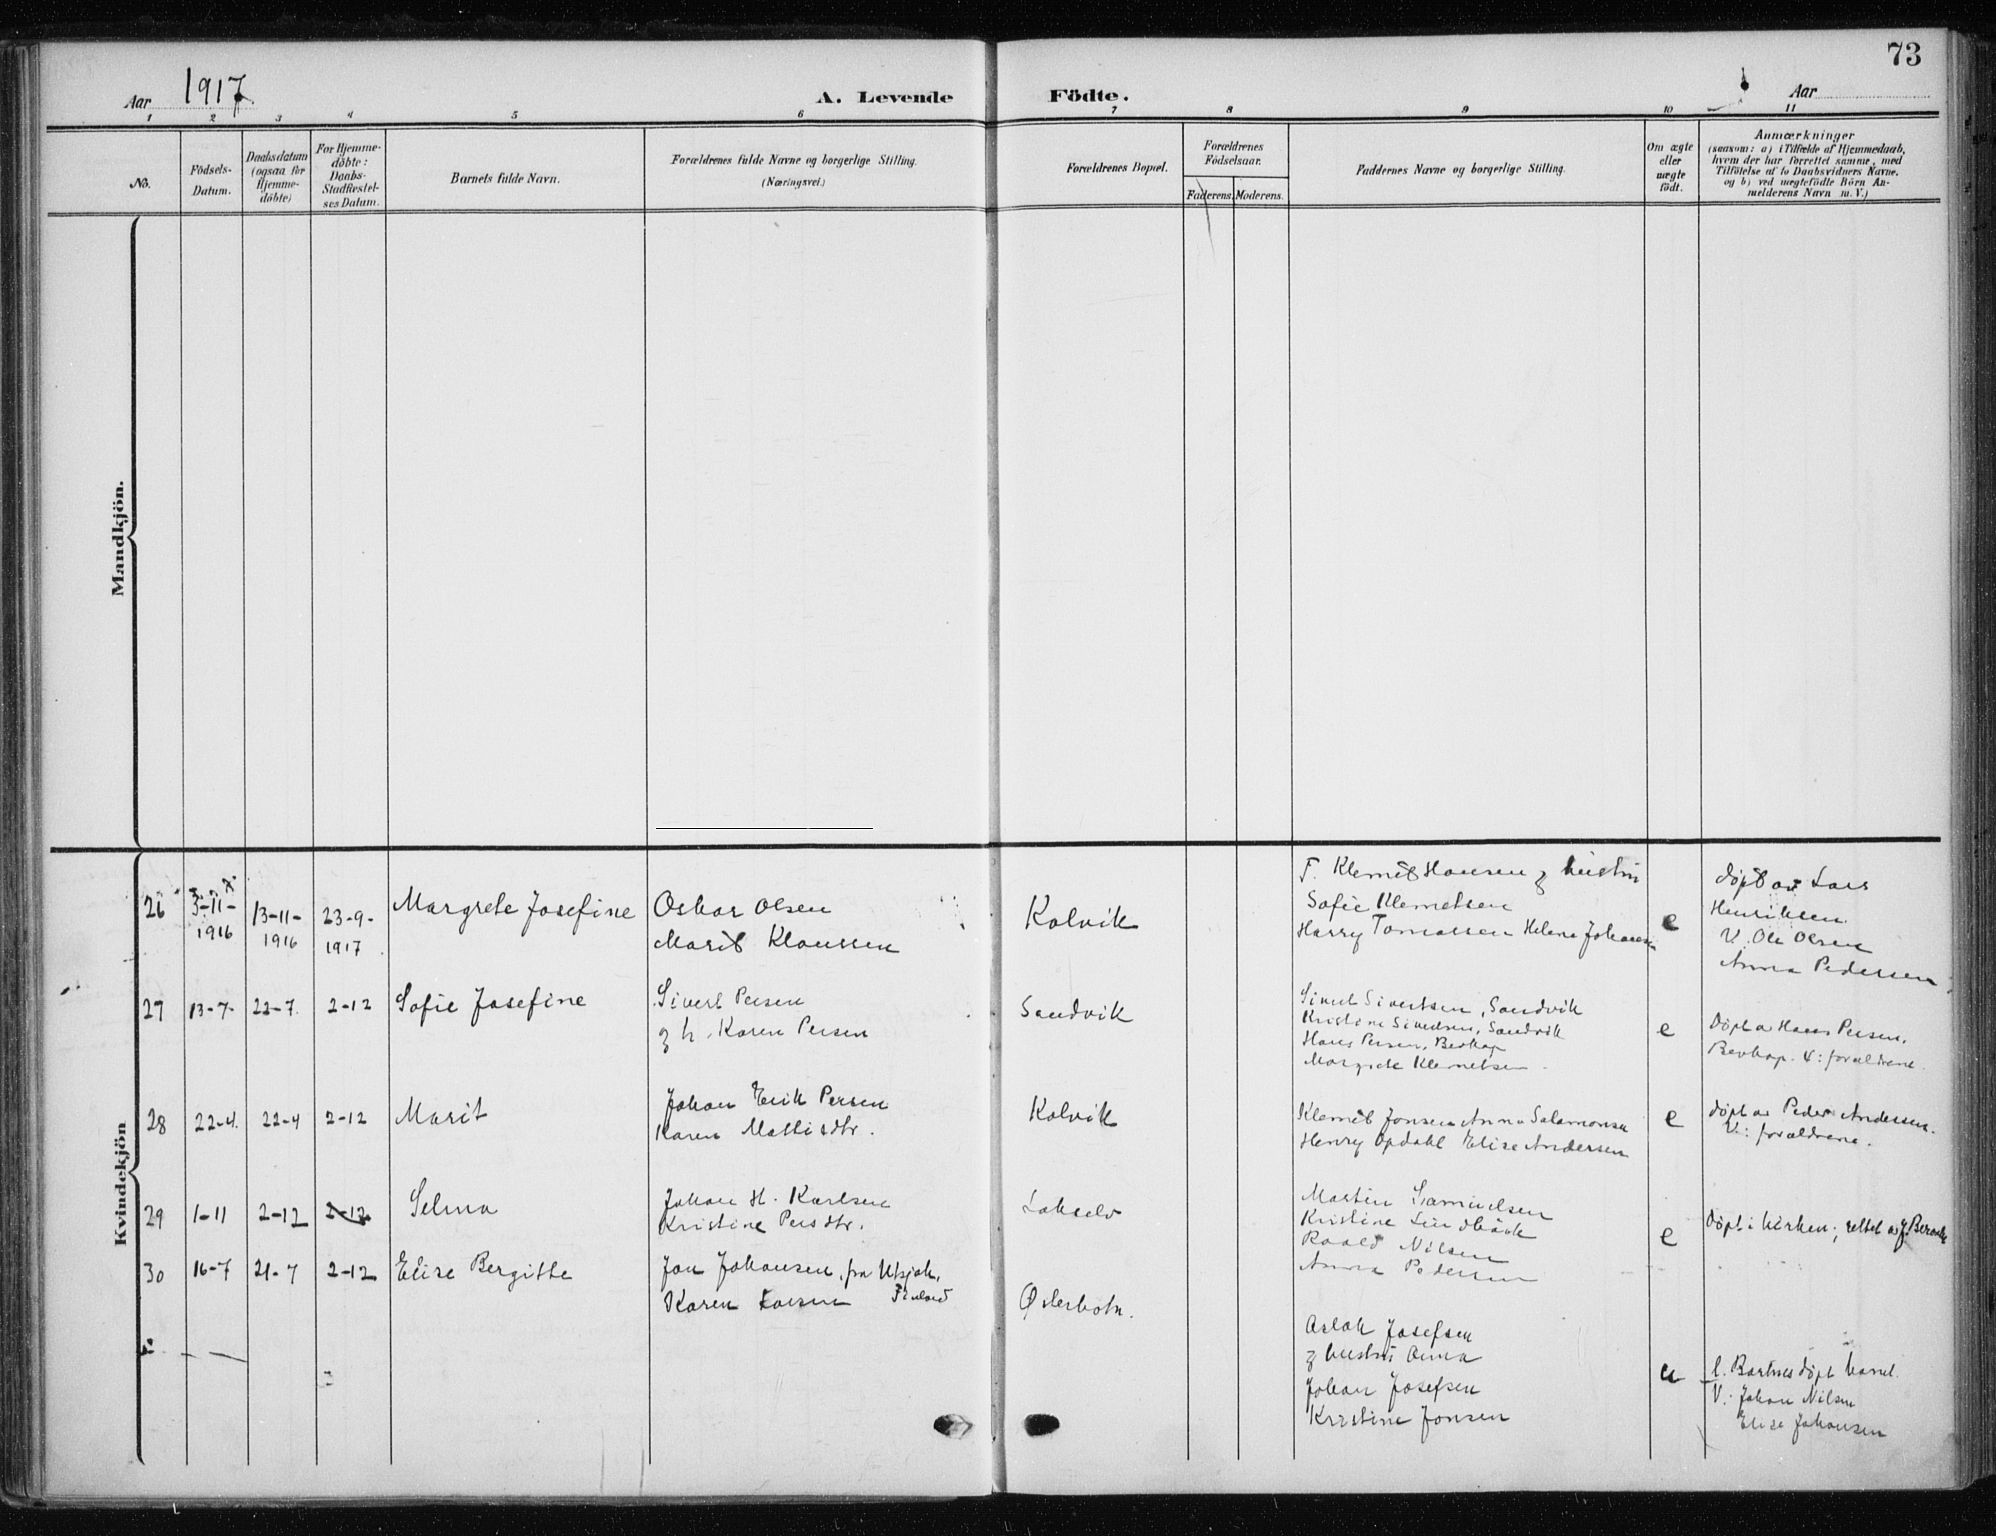 73
Aar 1917
A. Levende Födte.
Aar
1 2 3 4 5 6 7 8 9 10 11
No.
Födsels-
Datum.
Daabsdatum
(ogsaa for
Hjemme-
döbte)
For Hjemme-
döbte:
Daabs-
Stadfæstel-
ses Datum.
Barnets fulde Navn.
Forældrenes fulde Navne og borgerlige Stilling.
(Næringsvei.)
Forældrenes Bopæl.
Forældrenes
Födselsaar.
Faderens. Moderens.
Faddernes Navne og borgerlige Stilling.
Om ægte
eller
uægte
födt.
Anmærkninger
(saasom: a) i Tilfælde af Hjemmedaab,
hvem der har forrettet samme, med
Tilföielse af to Daabsvidners Navne.
og b) ved uægtefödte Börn An-
melderens Navn m. V.)
Mandkjön.
Kvindekjön
26
3-11-
1916
13-11-
1916
23-9-
1917
Margrete Josefine
Oskar Olsen
Marit Klaussen
Kolvik
F. Klemet Hansen & hustru
Sofie Klemetsen
Harry Tomassen Helene Johansen
e
døpt av Lars
Henriksen
V. Ole Olsen
Anna Pedersen
27
13-7-
22-7.
2-12
Sofie Josefine
Sivert Persen
& h. Karen Persen
Sandvik
Sivert Sivertsen, Sandvik
Kristine Sivertsen, Sandvik
Hans Persen, Bevkop
Margrete Klemetsen
e
Døpt a Hans Persen,
Bevkop. V: forældrene.
28
22-4.
22-4
2-12
Marit
Johan Erik Persen
Karen Mattisdtr.
Kolvik
Klemet Jonsen Anna Salamonsen
Henry Opdahl Elise Andersen
e
døpt av Peder Andersen.
V: forældrene.
29
1-11
2-12
2-12
Selma
Johan H. Karlsen
Kristine Persdtr.
Lakselv
Martin Samuelsen
Kristine Lindbäck
Roald Nilsen
Anna Pedersen
e
Døpt i kirken; rettet av J.
30
16-7
21-7
2-12
Elise Bergitte
Jon Johansen, fra Utsjok,
Finland
Karen Larsen
Østerbotn.
Aslak Josefsen
& hustru Anna
Johan Josefsen
Kristine Jonsen
u
l. Bartnes døpt barnet.
V: Johan Nilsen
Elise Johansen